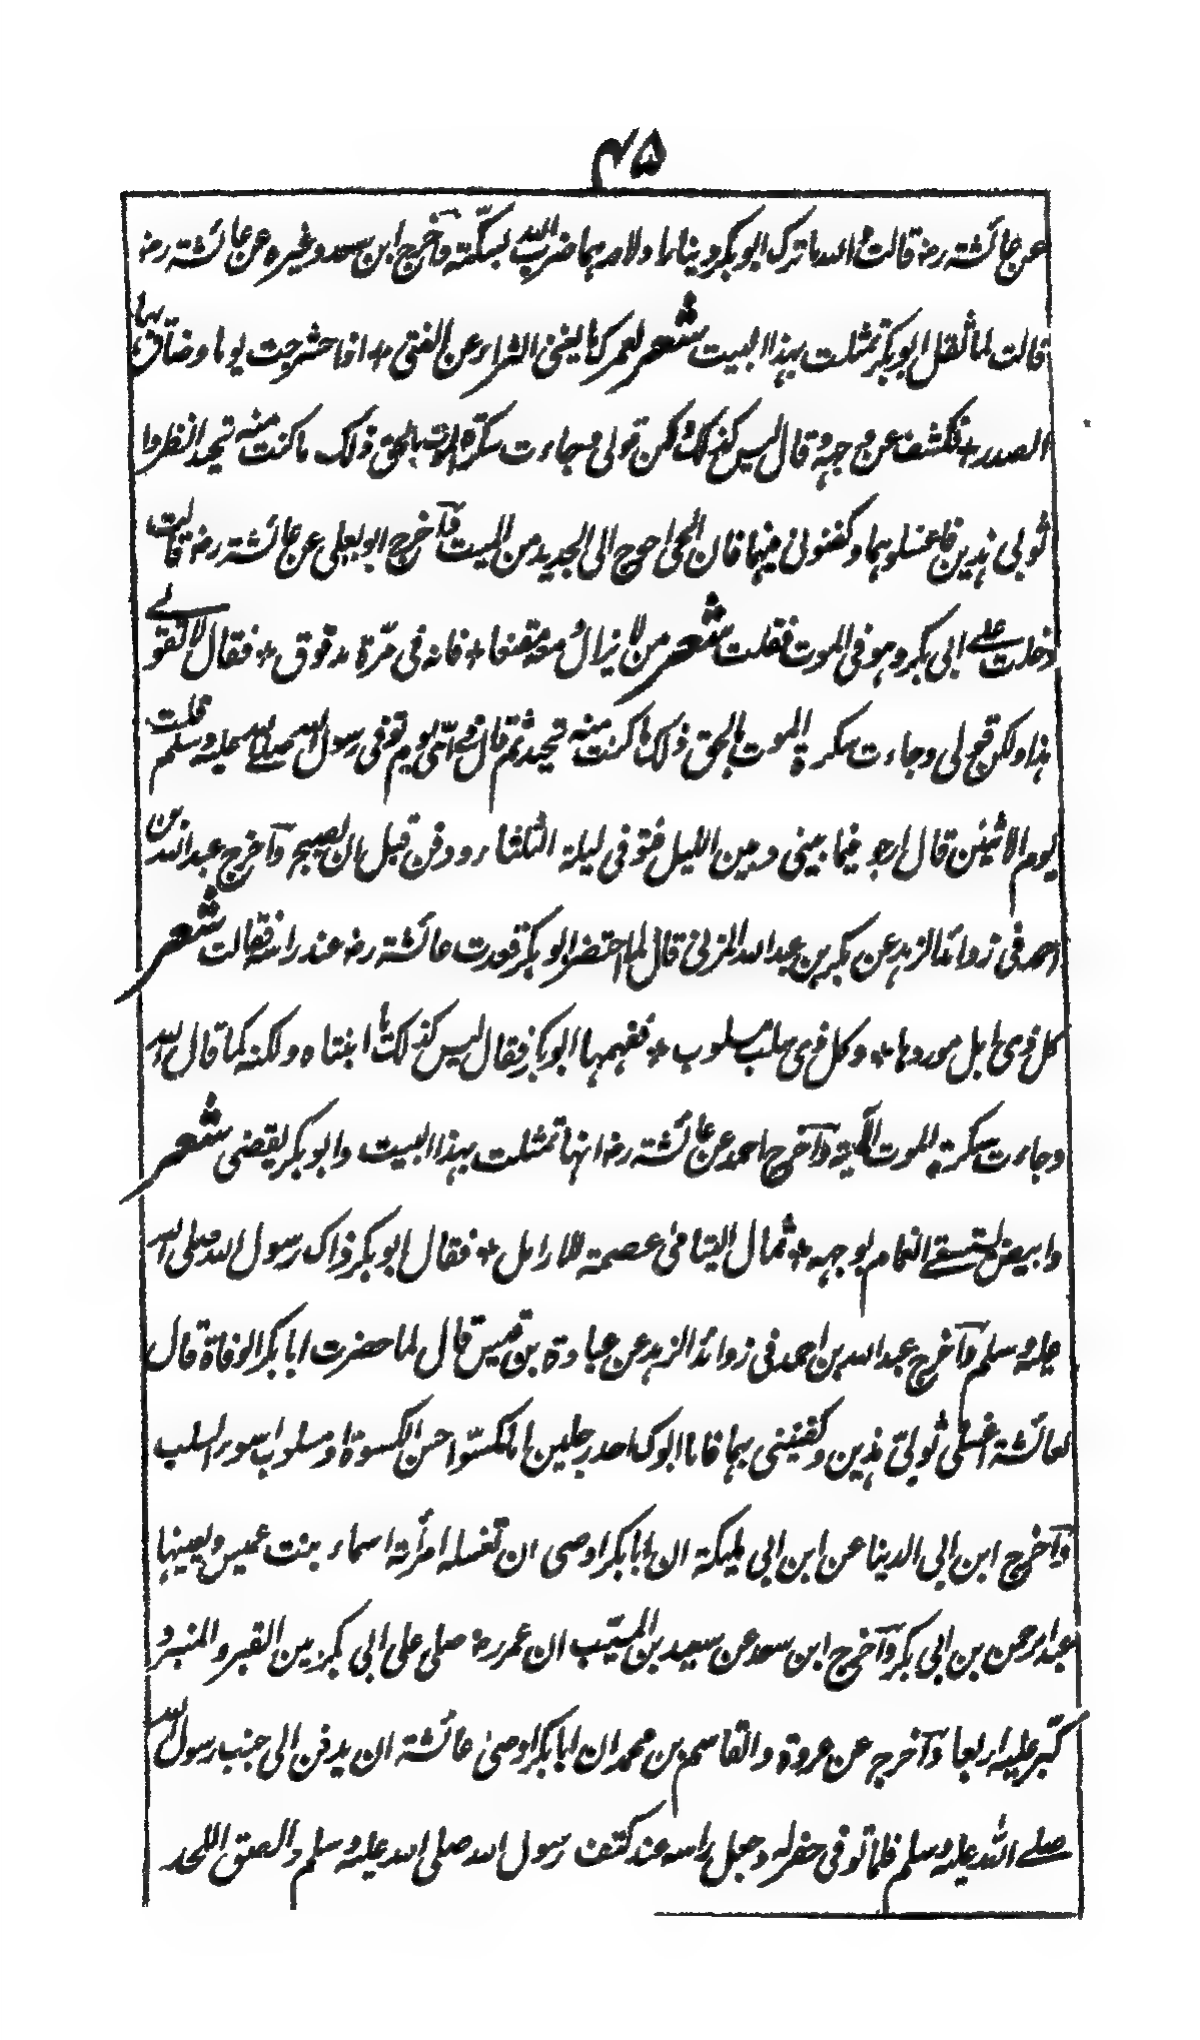 ۴۵
عن عائشة رضہ قالت واللہ ما ترک ابوبکر دینارا ولا درہما ضرب اللہ بسکتہ وآخرج ابن سعد وغیرہ عن عائشة رضہ
قالت لما ثقل ابوبکر تمثلت بہذا البیت شعر لعمرک ما یغنی الثراء عن الفتی * اذا حشرجت یوما وضاق بہا
الصدر * فکشف عن وجہہ وقال لیس کذلک ولکن قولی وجاءت سکرة الموت بالحق ذلک ما کنت منہ تحید انظروا
ثوبی ہذین فاغسلوہما وکفنونی فیہما فان الحی احوج الی الجدید من المیت وآخرج ابو یعلی عن عائشة رضہ قالت
دخلت علی ابی بکر وہو فی الموت فقلت شعر من لا یزال دمعہ مقنعا * فانہ فی مرّة مدفوق * فقال لا تقولی
ہذا ولکن قولی وجاءت سکرة الموت بالحق ذلک ما کنت منہ تحید ثم قال فی ایّ یوم توفی رسول اللہ صلی اللہ علیہ وسلم قلت
یوم الاثنین قال ارجو فیما بینی وبین اللیل فتوفی لیلة الثلثاء ودفن قبل ان یصبح وآخرج عبداللہ بن
احمد فی زوائد الزہد عن بکر بن عبد اللہ المزنی قال لما احتضر ابوبکر قعدت عائشة رضہ عند راسہ فقالت شعر
کل ذی ابل موردہا * وکل ذی سلب مسلوب * ففہمہا ابوبکر فقال لیس کذلک یا ابنتاہ ولکنہ کما قال اللہ
وجاءت سکرة الموت الآیة وآخرج احمد عن عائشة رضہ انہا تمثلت بہذا البیت وابوبکر یقضی شعر
وابیض یستسقے الغمام بوجہہ * ثمال الیتامی عصمة للارامل * فقال ابوبکر ذاک رسول اللہ صلی اللہ
علیہ وسلم وآخرج عبد اللہ بن احمد فی زوائد الزہد عن عبادة بن قیس قال لما حضرت ابا بکر الوفاة قال
لعائشة اغسلی ثوبیّ ہذین وکفنینی بہما فانما ابوک احد رجلین اما مکسوّ احسن الکسوة او مسلوب اسوء السلب
وآخرج ابن ابی الدنیا عن ابن ابی ملیکة ان ابا بکر اوصی ان تغسلہ امرأتہ اسماء بنت عمیس ویعینہا
عبد الرحمن بن ابی بکر وآخرج ابن سعد عن سعید بن المسیّب ان عمر رضہ صلی علی ابی بکر بین القبر والمنبر و
کبّر علیہ اربعا وآخرج عن عروة والقاسم بن محمد ان ابا بکر اوصیٰ عائشة ان یدفن الی جنب رسول اللہ
صلے اللہ علیہ وسلم فلما توفی حفر لہ وجعل راسہ عند کتف رسول اللہ صلی اللہ علیہ وسلم والصق اللحد